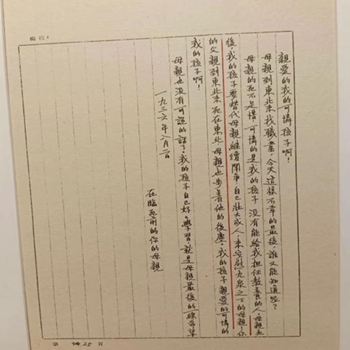 親愛的我的可憐孩子啊！
母親到東北來找職業，今天這樣不幸的最後，誰又能知道呢？
母親的死不足惜，可憐的是我的孩子，沒有能給我担任教養的人，母親死
後，我的孩子要替代母親繼續鬥爭，自己壯大成人，來安慰九泉之下的母親，你
的父親到東北來死在東北，母親也步着他的後塵，我的孩子，親愛的可憐的
我的孩子啊！
母親也沒有可說的話了，我的孩子自己好好學習，就是母親最後的一線希望
一九三六年八月二日
在臨死前的你的母親
第 25 頁